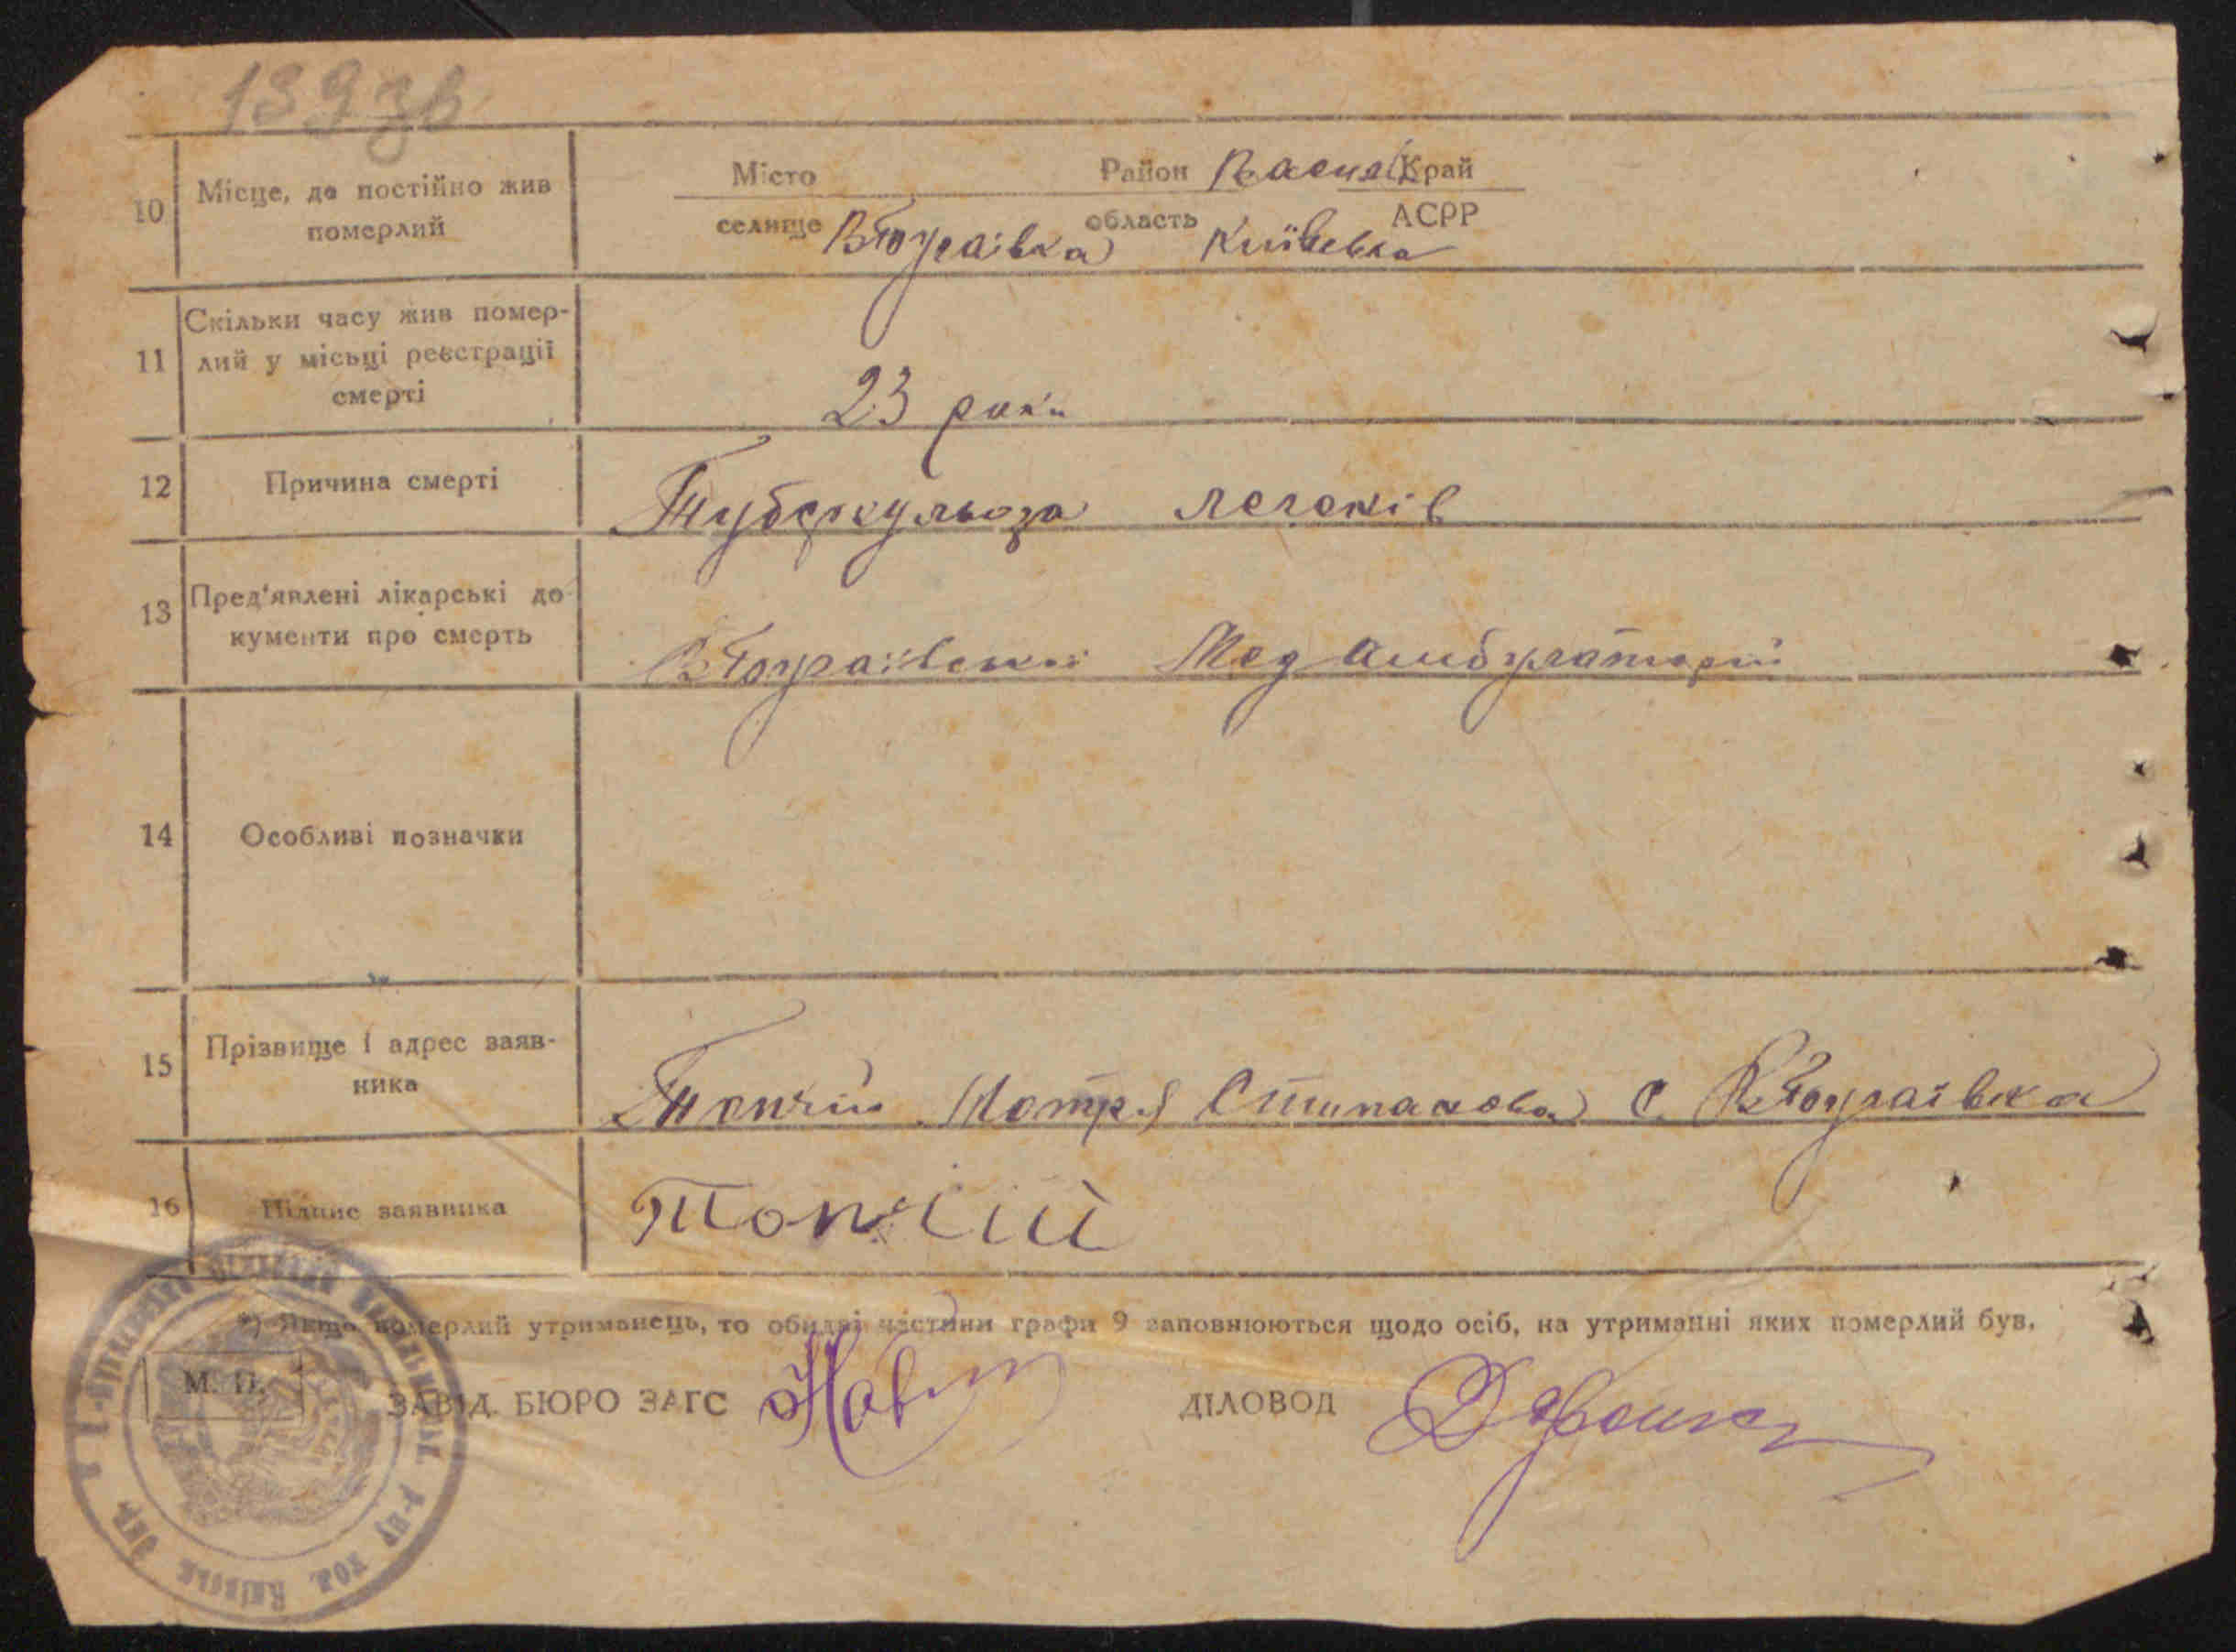 139 зв
10 Місце, де постійно жив померлий
Місто Район Васил Край
селище ВБугаївка область Київська АСРР
11 Скільки часу жив помер-
лий у місьці реєстрації
смерті
23 роки
12 Причина смерті Туберкульоза легенів
13 Пред'явлені лікарські до-
кументи про смерть
ВБугаївської Мед Амбулаторії
14 Особливі позначки
15 Прізвище і адрес заяв-
ника
Топчій Мотря Степанова с. ВБугаївка
16 Підпис заявника Топчій
*) Якщо померлий утриманець, то обидві частини графи 9 заповнюються щодо осіб, на утриманні яких померлий був.
М. П.
ЗАВІД. БЮРО ЗАГС ДІЛОВОД